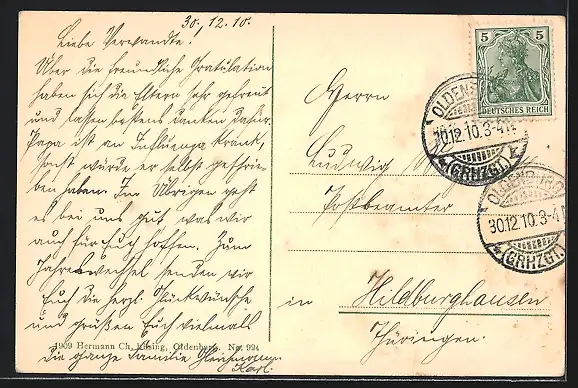 30.12.10.
Liebe Verwandte!
Über die freundliche Gratulation
haben sich die Eltern sehr gefreut
und lassen bestens danken dafür.
Papa ist an Influenza krank,
sonst würde er selbst geschrie-
ben haben. Im Übrigen geht
es bei uns gut, was wir
auch für Euch hoffen. Zum
Jahreswechsel senden wir
Euch die herzl. Glückwünsche
und grüßen Euch vielmals
die ganze Familie
Karl.
1909 Hermann Ch. Büsing, Oldenburg. No. 994
5 5
DEUTSCHES REICH
OLDENBURG
30.12.10.3-4N
(GRHZGT.)
OLDENBURG
30.12.10.3-4N
(GRHZGT.)
Herrn
Ludwig
Postbeamter
in Hildburghausen
Thüringen.